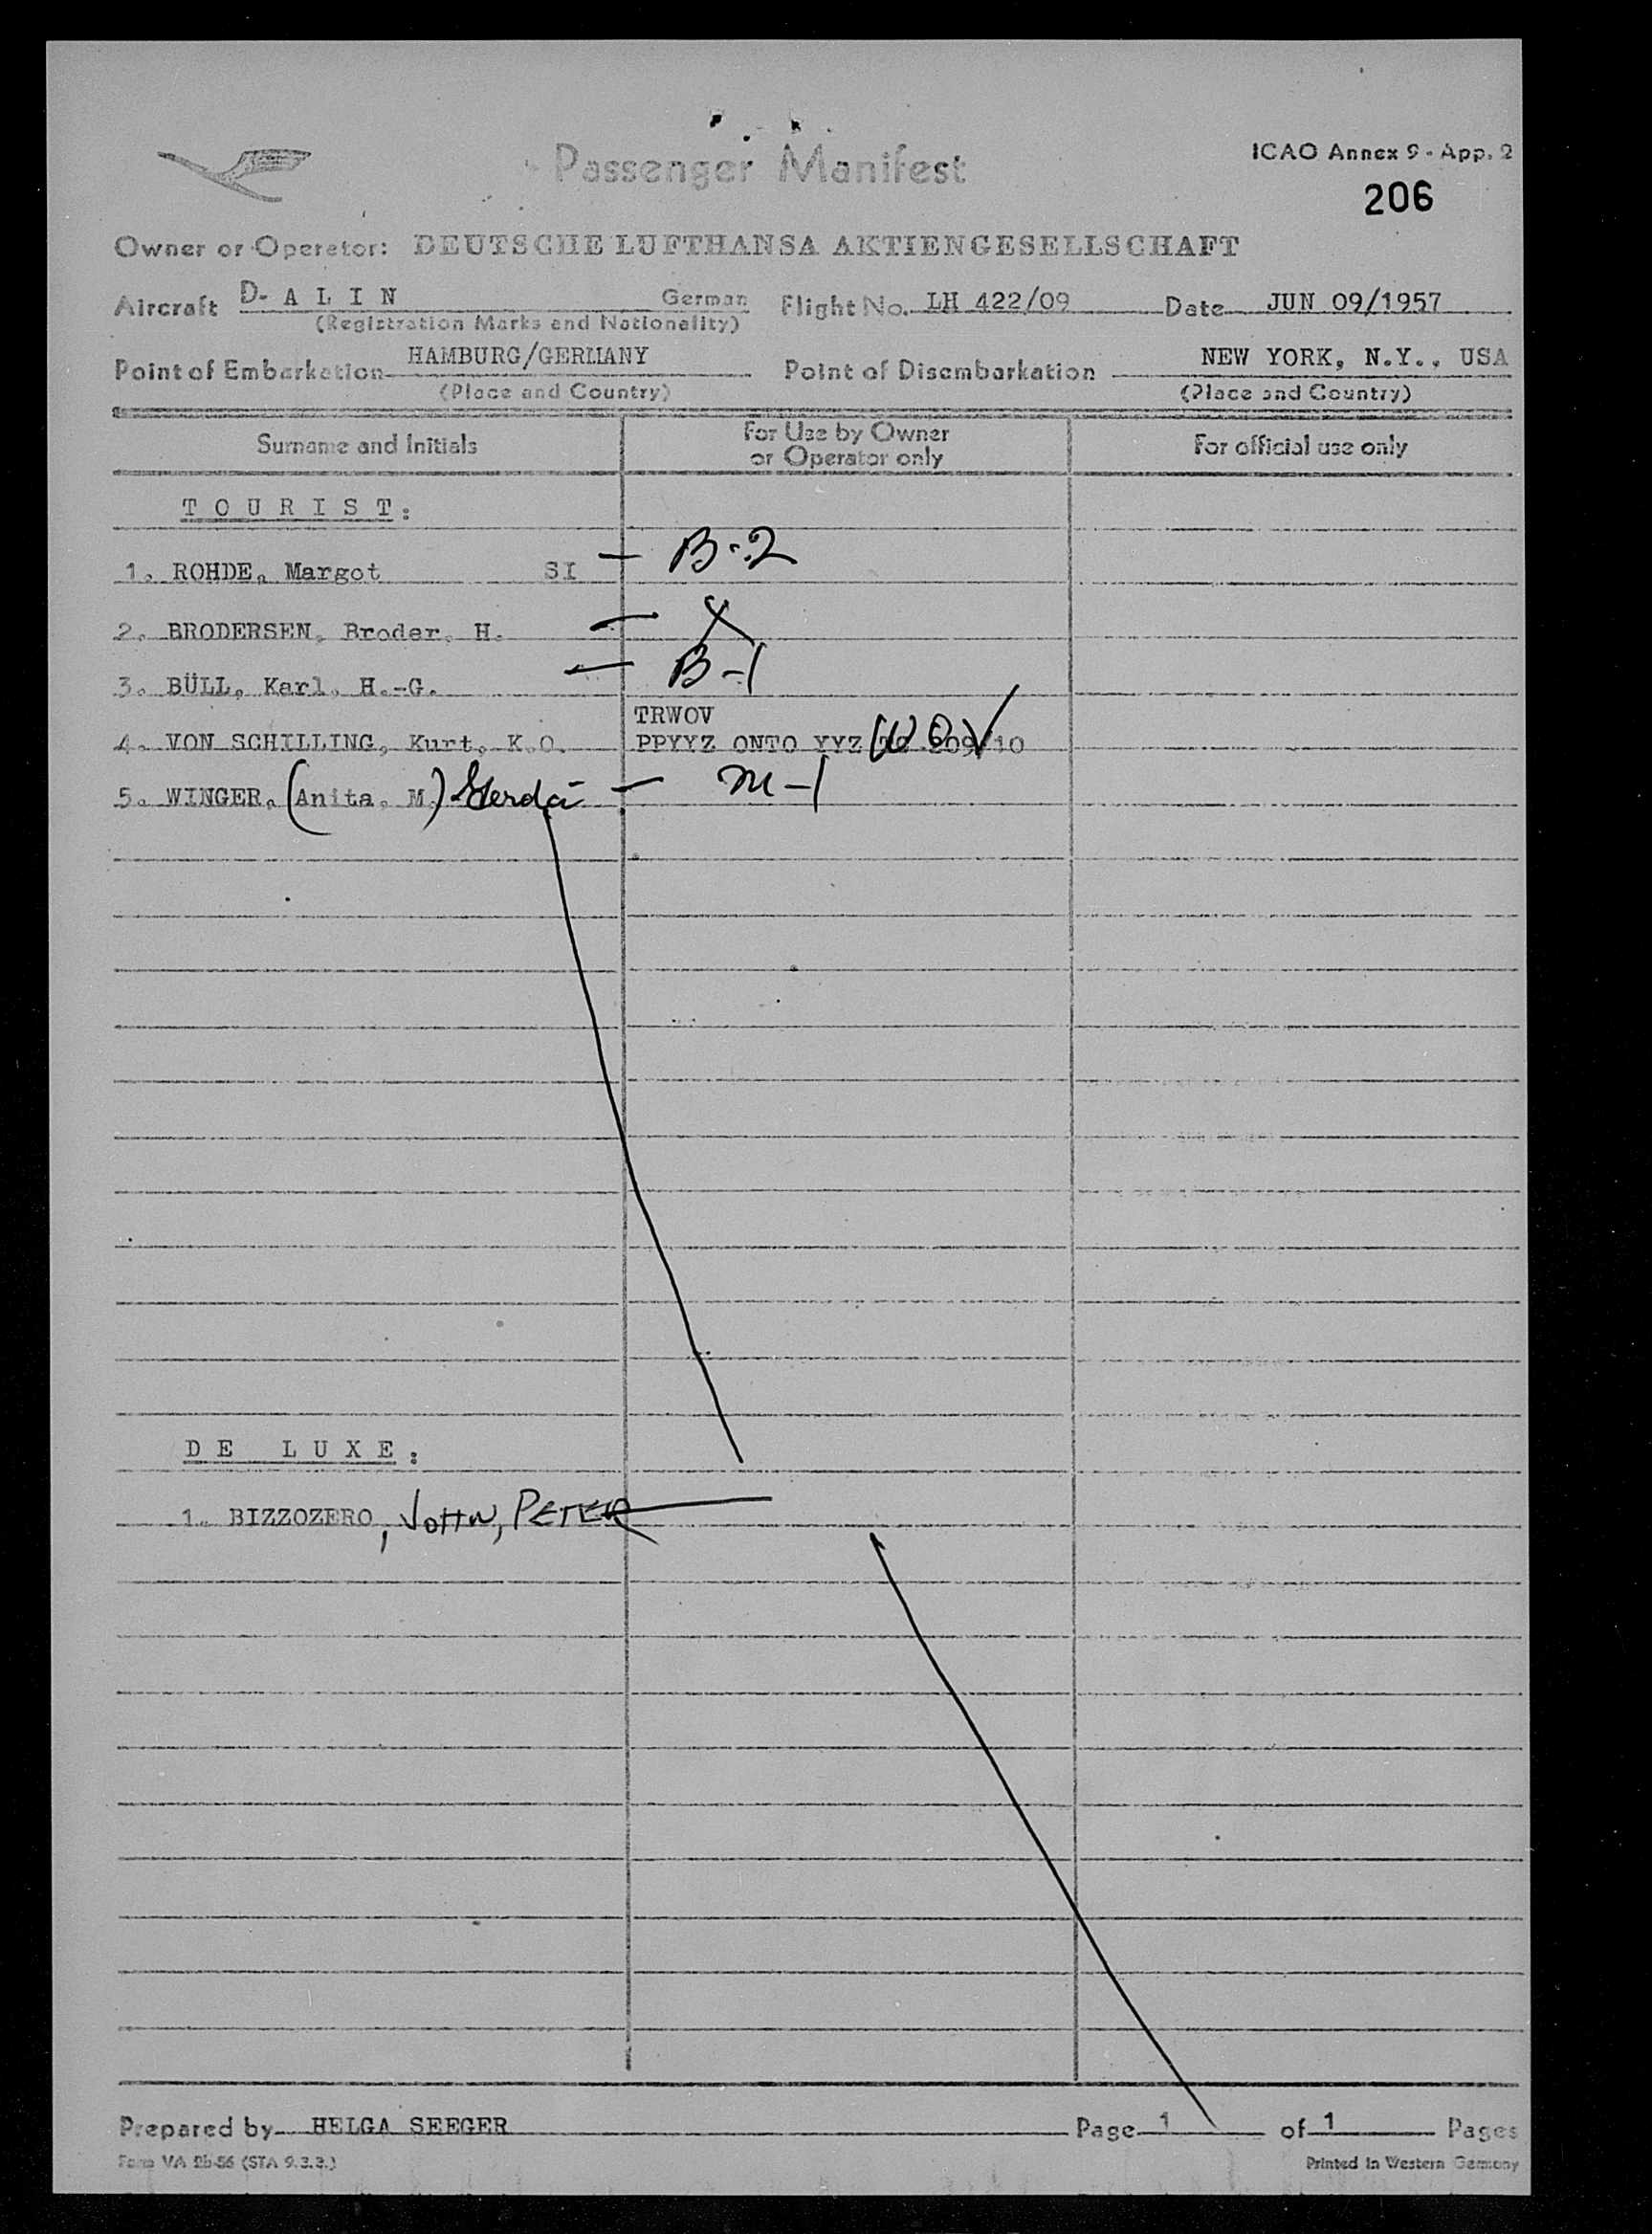 Passenger Manifest
ICAO Annex 9 - App. 2
206
Owner or Operator: DEUTSCHE LUFTHANSA AKTIENGESELLSCHAFT
Aircraft D-ALIN German Flight No. LH 422/09 Date JUN 09/1957
(Registration Marks and Nationality)
Point of Embarkation HAMBURG/GERMANY Point of Disembarkation NEW YORK, N.Y., USA
(Place and Country) (Place and Country)
Surname and Initials For Use by Owner or Operator only For official use only
T O U R I S T :
1. ROHDE, Margot SI — B-2
2. BRODERSEN, Broder, H. — X
3. BÜLL, Karl, H.-G. — B-1
TRWOV
4. VON SCHILLING, Kurt, K.O. PPYYZ ONTO YYZ 209/10 WOV
5. WINGER, (Anita, M.) Gerda — M-1
D E L U X E :
1. BIZZOZERO, JOHN, PETER
Prepared by HELGA SEEGER Page 1 of 1 Pages
Form VA 2b-56 (STA 9.3.3.) Printed in Western Germany